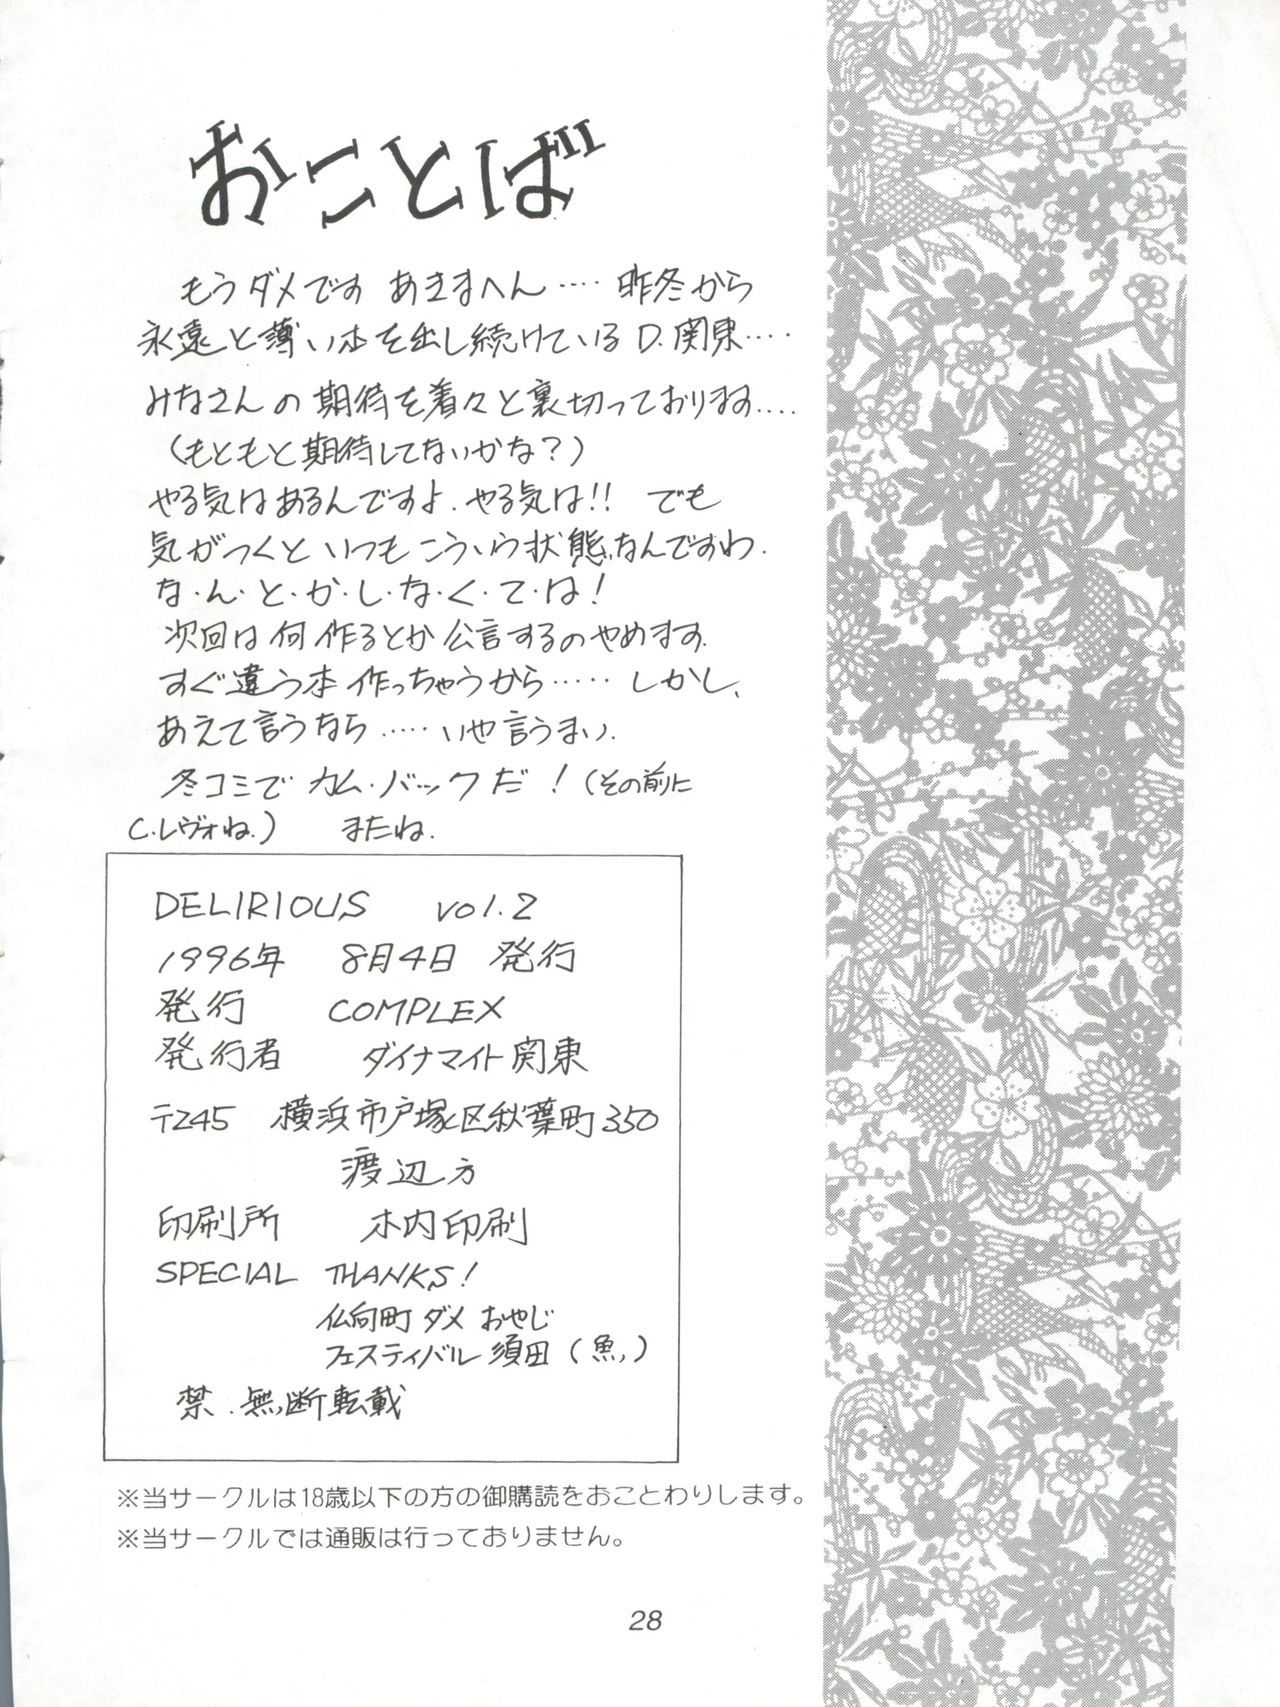 おことば
もうダメです あきまへん‥‥ 昨冬から
永遠と薄い本を出し続けているD.関東‥‥
みなさんの期待を着々と裏切っております‥‥
(もともと期待してないかな？)
やる気はあるんですよ.やる気は!! でも
気がつくといつもこういう状態なんですわ.
な・ん・と・か・し・な・く・て・は!
次回は何作るとか公言するのやめます.
すぐ違う本作っちゃうから‥‥‥しかし、
あえて言うなら‥‥‥いや言うまい.
冬コミでカム・バックだ！(その前に
C.レヴォね.) またね.
DELIRIOUS vol.2
1996年 8月4日 発行
発行 COMPLEX
発行者 ダイナマイト関東
〒245 横浜市戸塚区秋葉町350
渡辺方
印刷所 木内印刷
SPECIAL THANKS!
仏向町ダメおやじ
フェスティバル須田(魚)
禁.無断転載
※当サークルは18歳以下の方の御購読をおことわりします。
※当サークルでは通販は行っておりません。
28